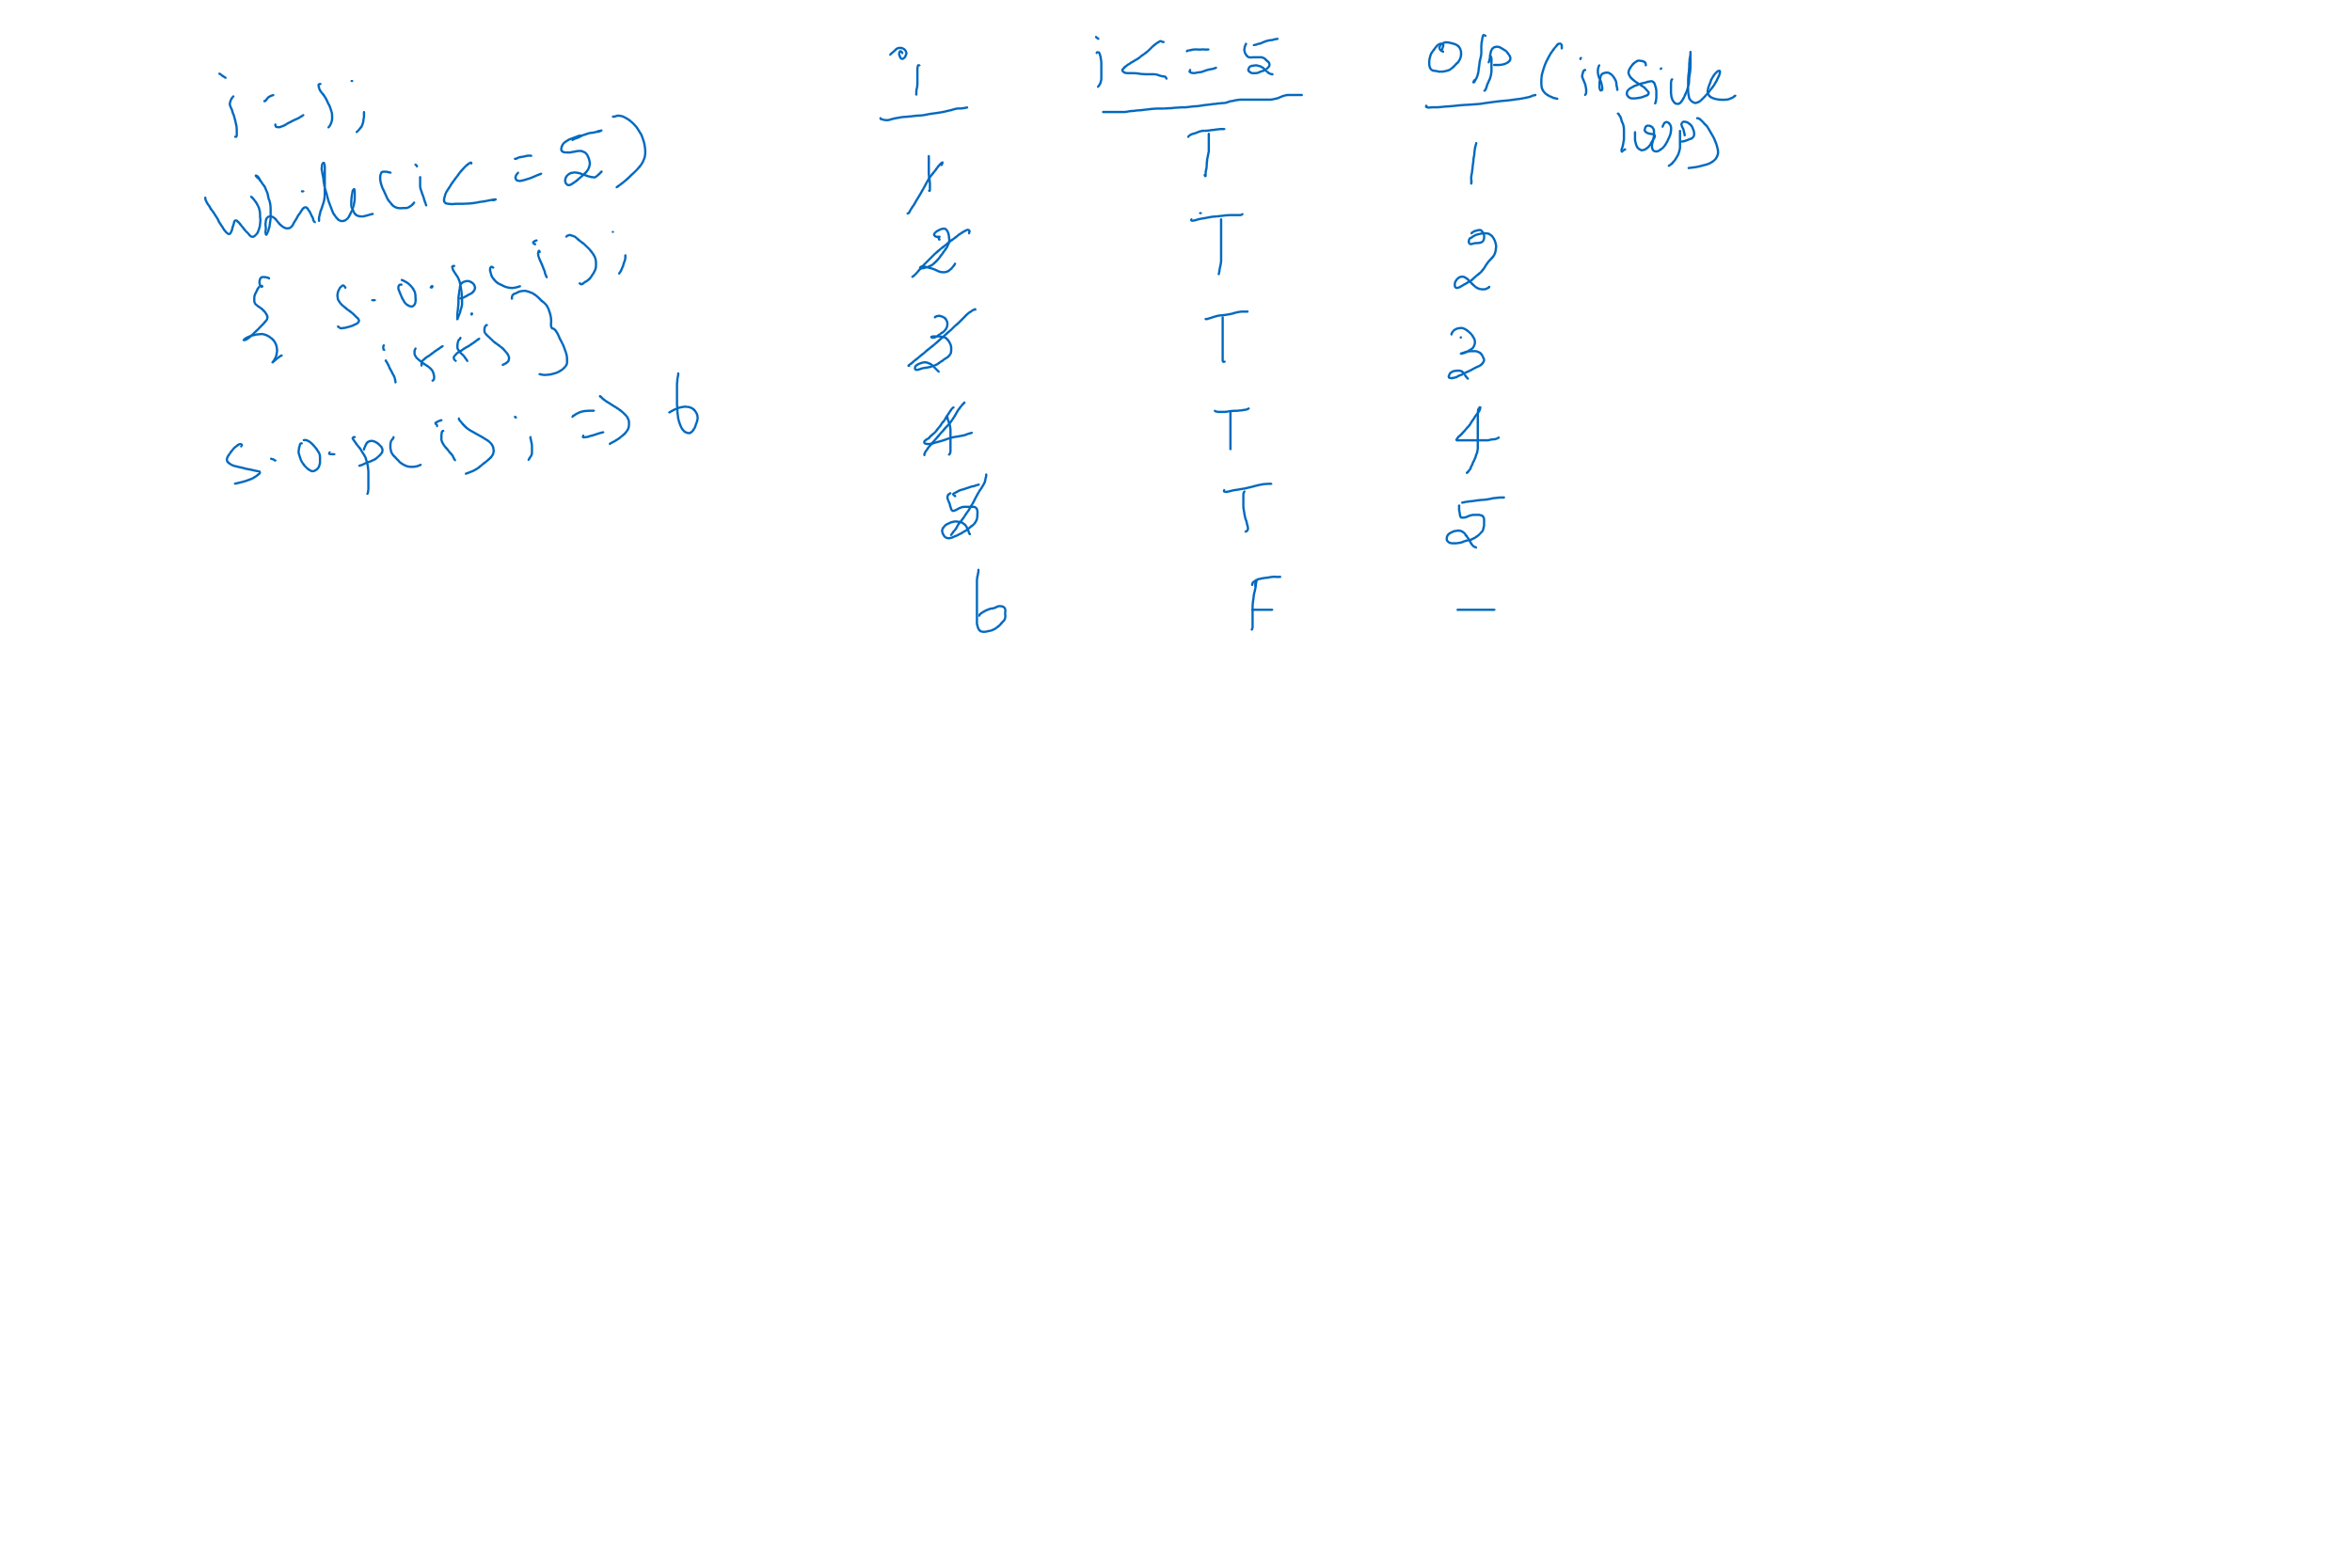 i=1;
while(i<=5)
{ S.o.p(i);
i++; }
S.o.p(i); => 6
i i<=5 OP (inside loop)
1 T 1
2 T 2
3 T 3
4 T 4
5 T 5
6 F —